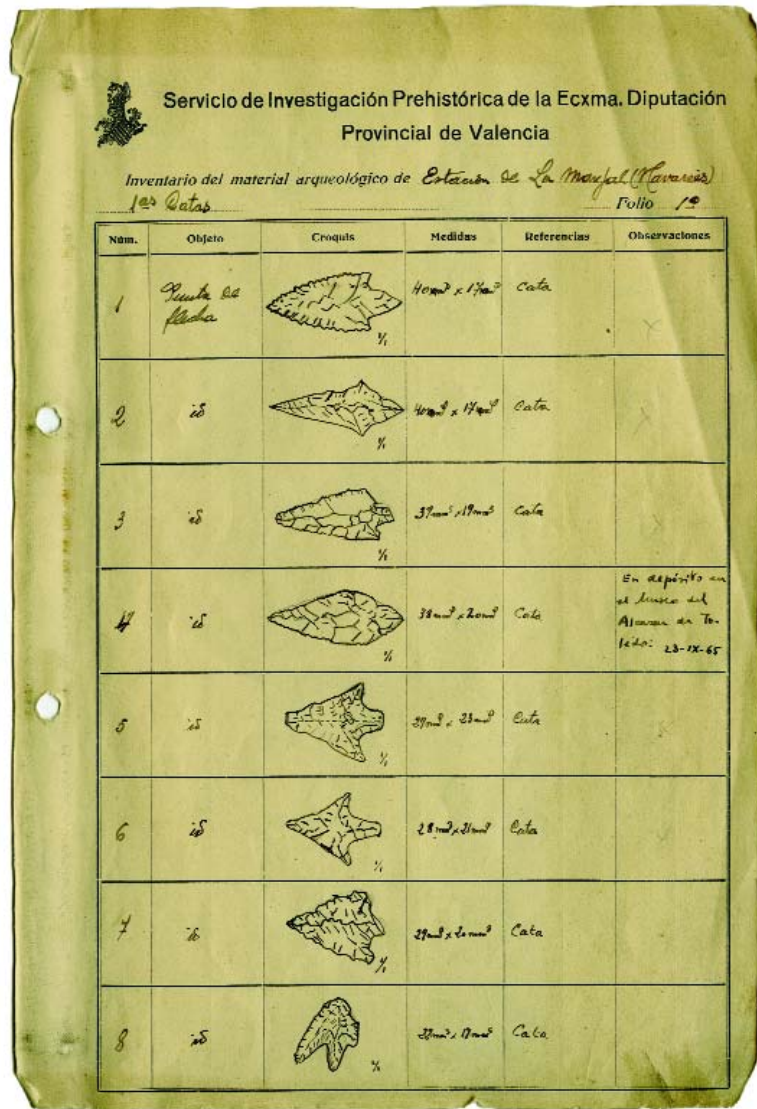 Servicio de Investigación Prehistórica de la Ecxma. Diputación
Provincial de Valencia
Inventario del material arqueológico de Estación de La Marjal (Navarrés)
1as Catas Folio 1º
Núm. Objeto Croquis Medidas Referencias Observaciones
1 Punta de flecha 1/1 40mm x 17mm Cata
2 id 1/1 40mm x 17mm Cata
3 id 1/1 37mm x 19mm Cata
4 id 1/1 38mm x 20mm Cata
En depósito en
el Museo del
Alcazar de To-
ledo: 23-IX-65
5 id 1/1 x 23mm Cata
6 id 1/1 28mm x 21mm Cata
7 id 1/1 29mm x 20mm Cata
8 id 1/1 Cata